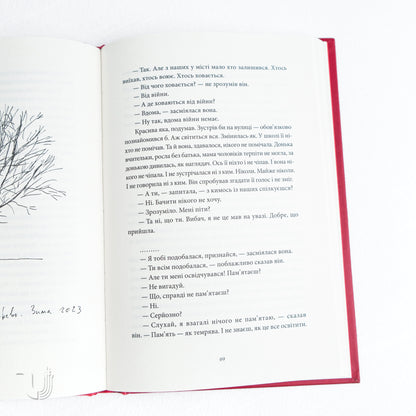 рево. Зима 2023
— Так. Але з наших у місті мало хто залишився. Хтось
виїхав, хтось воює. Хтось ховається.
— Від чого ховається? — не зрозумів він.
— Від війни.
— А де ховаються від війни?
— Вдома, — засміялася вона.
— Ну так, вдома війни немає.
Красива яка, подумав. Зустрів би на вулиці — обов'язково
познайомився б. Аж світиться вся. Змінилась як. У школі її ні-
хто не помічав. Та й вона, здавалося, нікого не помічала. Донька
вчительки, росла без батька, мама чоловіків терпіти не могла, за
донькою дивилась, як наглядач. Ось її ніхто і не чіпав. І вона ні-
кого не чіпала. І не зустрічалася ні з ким. Ніколи. Майже ніколи.
І не говорила ні з ким. Він спробував згадати її голос і не зміг.
— А ти, — запитала, — з кимось із наших спілкуєшся?
— Ні. Бачити нікого не хочу.
— Зрозуміло. Мені піти?
— Та ні, що ти. Вибач, я не це мав на увазі. Добре, що
прийшла.
..........
— Я тобі подобалася, признайся, — засміялася вона.
— Ти всім подобалася, — поблажливо сказав він.
— Але ти мені освідчувався! Пам'ятаєш?
— Не вигадуй.
— Що, справді не пам'ятаєш?
— Ні.
— Серйозно?
— Слухай, я взагалі нічого не пам'ятаю, — сказав
він. — Пам'ять — як темрява. І не знаєш, як це все освітити.
69